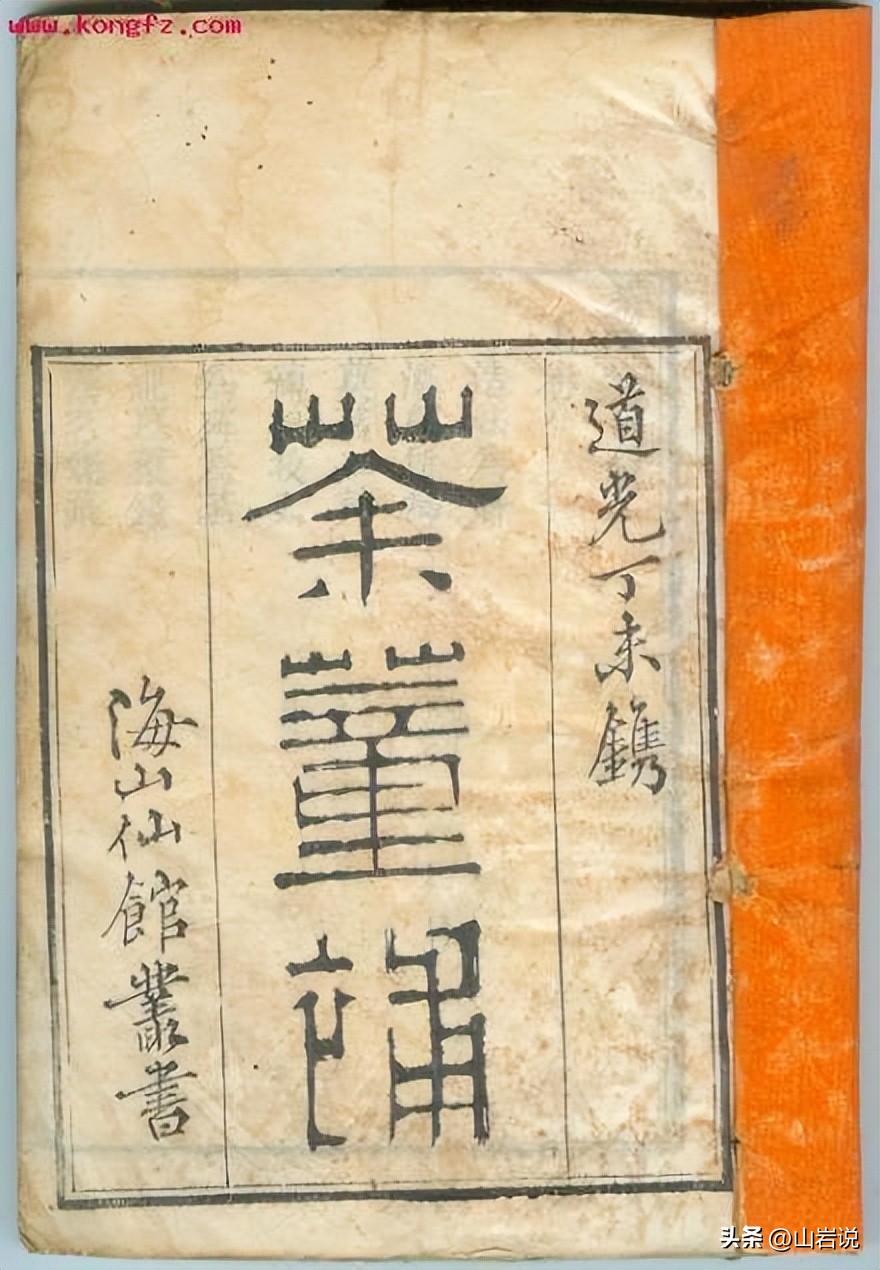 www.kongfz.com
道光丁未鐫
茶董補
海山仙館叢書
头条 @山岩说